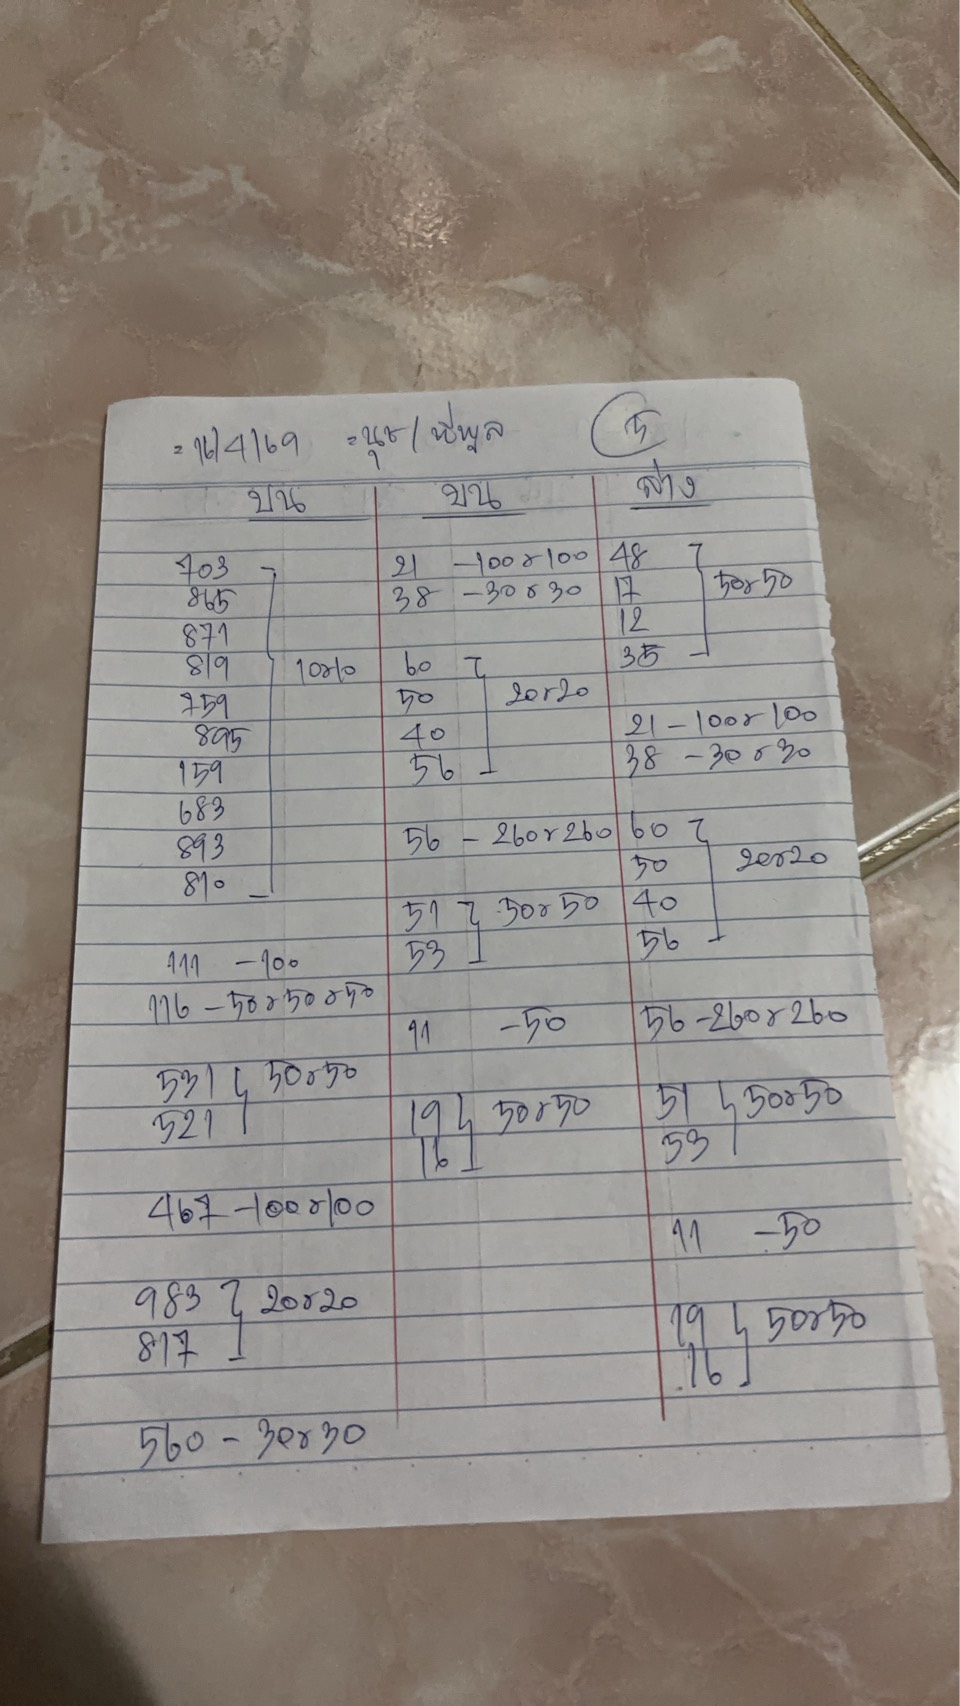 = 16/4/69 = นุช / พี่พูล 5
บน
703
865
871
819 10x10
759
895
159
683
893
810
111 - 100
116 - 50x50x50
531 50x50
521
467 - 100x100
983 20x20
817
560 - 30x30
บน
21 - 100x100
38 - 30x30
60
50 20x20
40
56
56 - 260x260
51 50x50
53
11 - 50
19 50x50
16
ล่าง
48
17 50x50
12
35
21 - 100x100
38 - 30x30
60
50 20x20
40
56
56 - 260x260
51 50x50
53
11 - 50
19 50x50
16